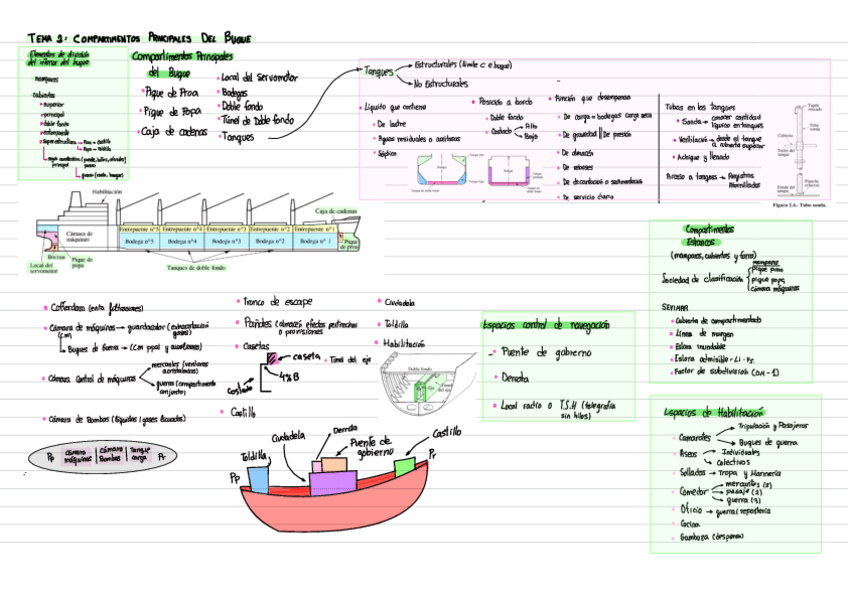 TEMA 2: COMPARTIMENTOS PRINCIPALES DEL BUQUE
Elementos de división
del interior del buque
Mamparos
Cubiertas
superior
principal
doble fondo
entrepuente
superestructura
Compartimentos Principales
del Buque
Pique de Proa
Pique de Popa
Caja de cadenas
Local del Servomotor
Bodegas
Doble fondo
Túnel de Doble fondo
Tanques
Tanques
Estructurales (límite c e buque)
No Estructurales
Líquido que contiene
De lastre
Aguas residuales o aceitosas
Séptico
Posición a bordo
Doble fondo
Costado
Alto
Bajo
Función que desempeña
De carga = bodegas carga seca
De gravedad || De presión
De almacén
De reboses
De decantación o sedimentos
De servicio diario
Tubos en los tanques
Sonda → conocer cantidad
líquido en tanques
Ventilación → desde el tanque
a cubierta superior
Achique y llenado
Acceso a tanques → Registros
Atornillados
Figura 2.4.- Tubo sonda.
Habilitación
Caja de cadenas
Cámara de
máquinas
Entrepuente nº5
Entrepuente nº4
Entrepuente nº3
Entrepuente nº2
Entrepuente nº1
Bodega nº5
Bodega nº4
Bodega nº3
Bodega nº2
Bodega nº 1
Pique
de proa
Bocina
Pique de
popa
Local del
servomotor
Tanques de doble fondo
Compartimentos
Estancos
(mamparos, cubiertas y forro)
Sociedad de clasificación
mamparos
pique proa
pique popa
cámara máquinas
SEVIMAR
Cubierta de compartimentado
Línea de margen
Eslora inundable
Eslora admisible = Li · Fs
Factor de subdivisión (0,4 - 1)
Cofferdam (evita filtraciones)
Cámara de máquinas → guardacalor (extracción
gases)
Buques de Guerra → (cm ppal y auxiliares)
Cámara Control de máquinas
mercantes (ventanas
acristaladas)
guerra (compartimento
conjunto)
Cámara de Bombas (líquidos / gases licuados)
Tronco de escape
Pañoles (almacén efectos pertrechos
o provisiones)
Casetas
caseta
4% B
Costado
Castillo
Ciudadela
Toldilla
Habilitación
Túnel del eje
Doble fondo
Espacios control de navegación
Puente de gobierno
Derrota
Local radio o T.S.H (telegrafía
sin hilos)
Espacios de Habilitación
Camarotes
Tripulación y Pasajeros
Buques de guerra
Aseos
Individuales
colectivos
Sollados → Tropa y Marinería
Comedor
mercantes (2)
pasaje (2)
guerra (3)
Oficio → guerra (repostería
Cocina
Gambuza (despensa)
Pp
cámara
máquinas
cámara
Bombas
Tanque
carga
Pr
Toldilla
Ciudadela
Derrota
Puente de
gobierno
Castillo
Pp
Pr